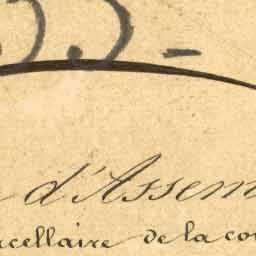 d'Assem
cellaire de la co